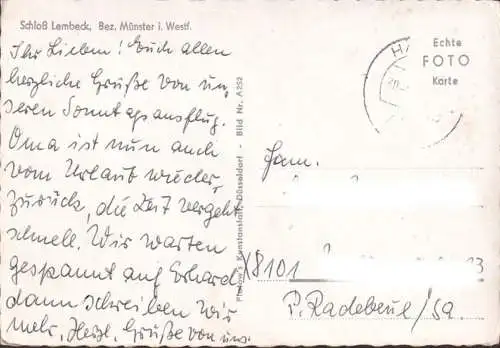 Schloß Lembeck, Bez. Münster i. Westf.
Ihr Lieben! Euch allen
herzliche Grüße von un,
seren Sonntagsausflug.
Oma ist nun auch
vom Urlaub wieder,
zurück, die Zeit vergeht
schnell. Wir warten
gespannt auf Erhard,
dann schreiben wir
mehr. Herzl. Grüße von uns
Kunstanstalt, Düsseldorf - Bild Nr. A 252
Echte
FOTO
Karte
Fam.
X8101
P. Radebeul/Sa.